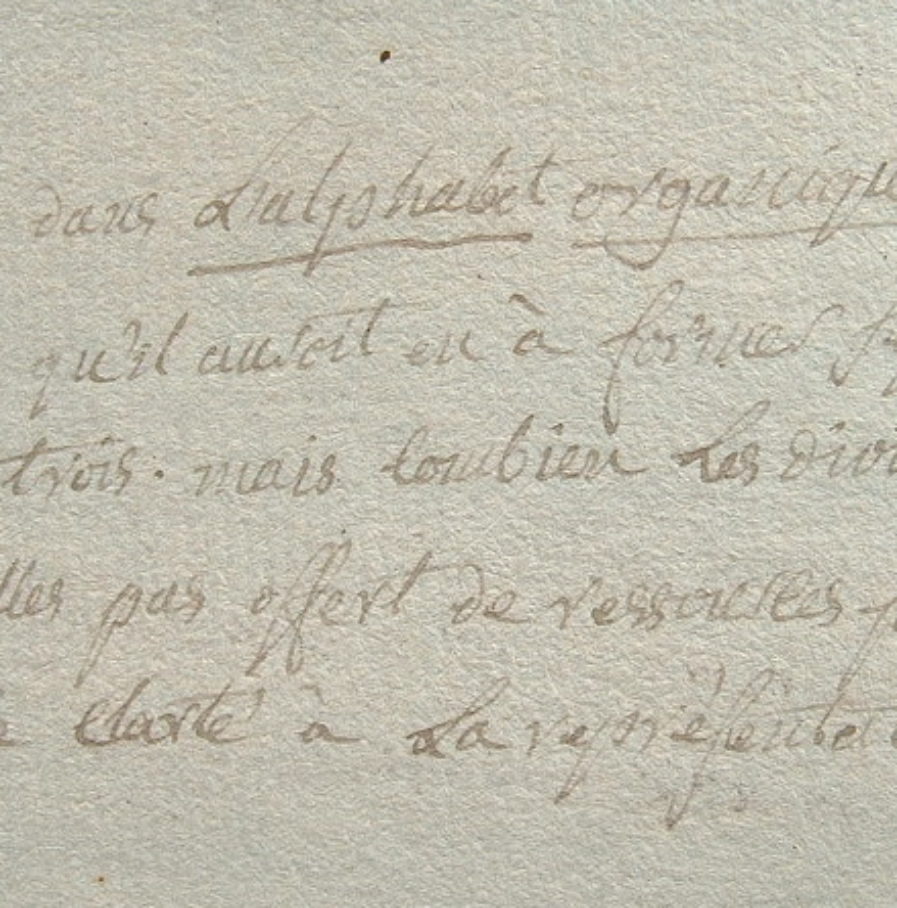 dans L'alphabet organique
qu'il auroit eu à former
trois. mais combien Les
lles pas offert de ressources
clarté à La représenta